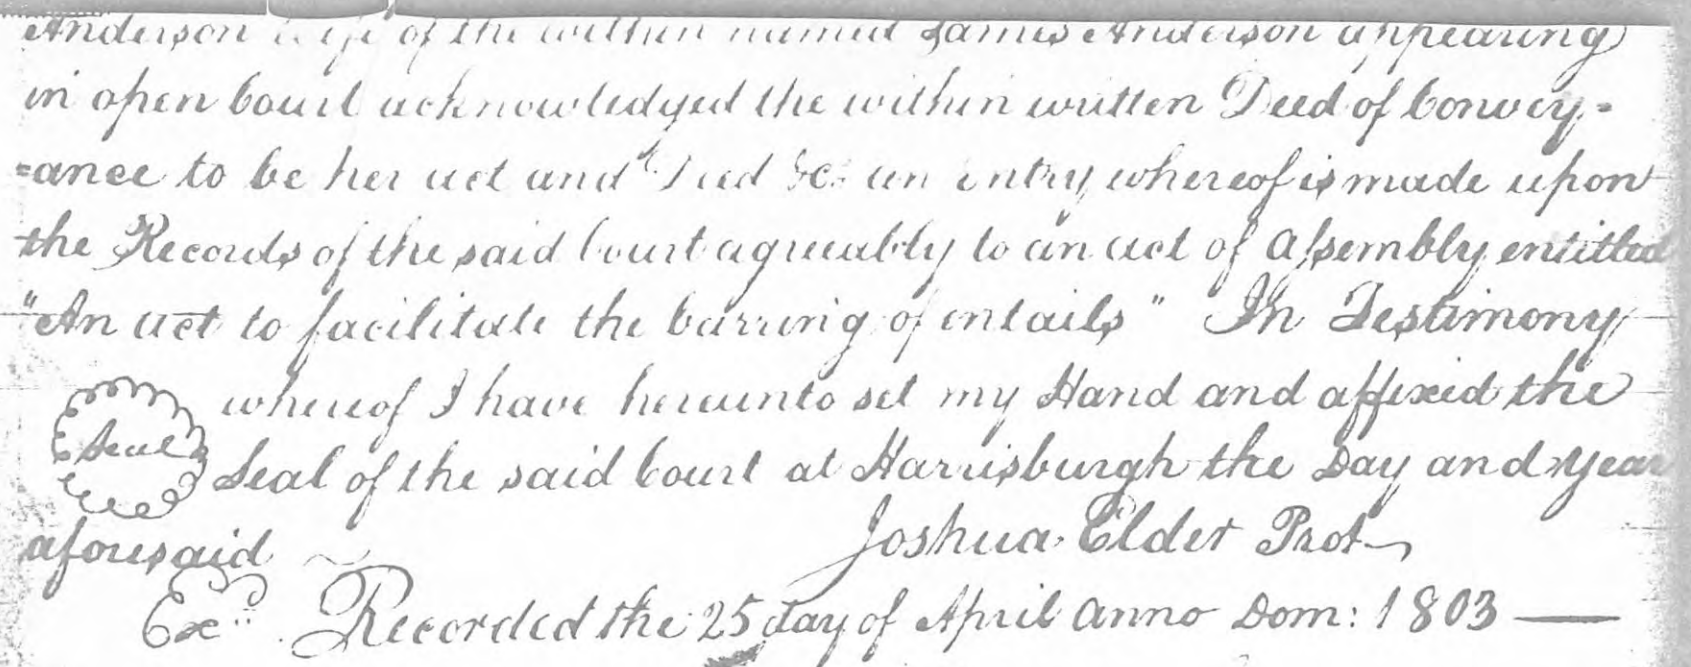 Anderson wife of the within named James Anderson appearing
in open Court acknowledged the within written Deed of Convey=
=ance to be her act and Deed &c: an Entry whereof is made upon
the Records of the said Court agreeably to an act of Assembly entitled
"An act to facilitate the barring of entails" In Testimony
whereof I have hereunto set my Hand and affixed the
Seal
Seal of the said Court at Harrisburgh the Day and Year
aforesaid
Joshua Elder Prot
Ex" Recorded the 25 day of April Anno Dom: 1803